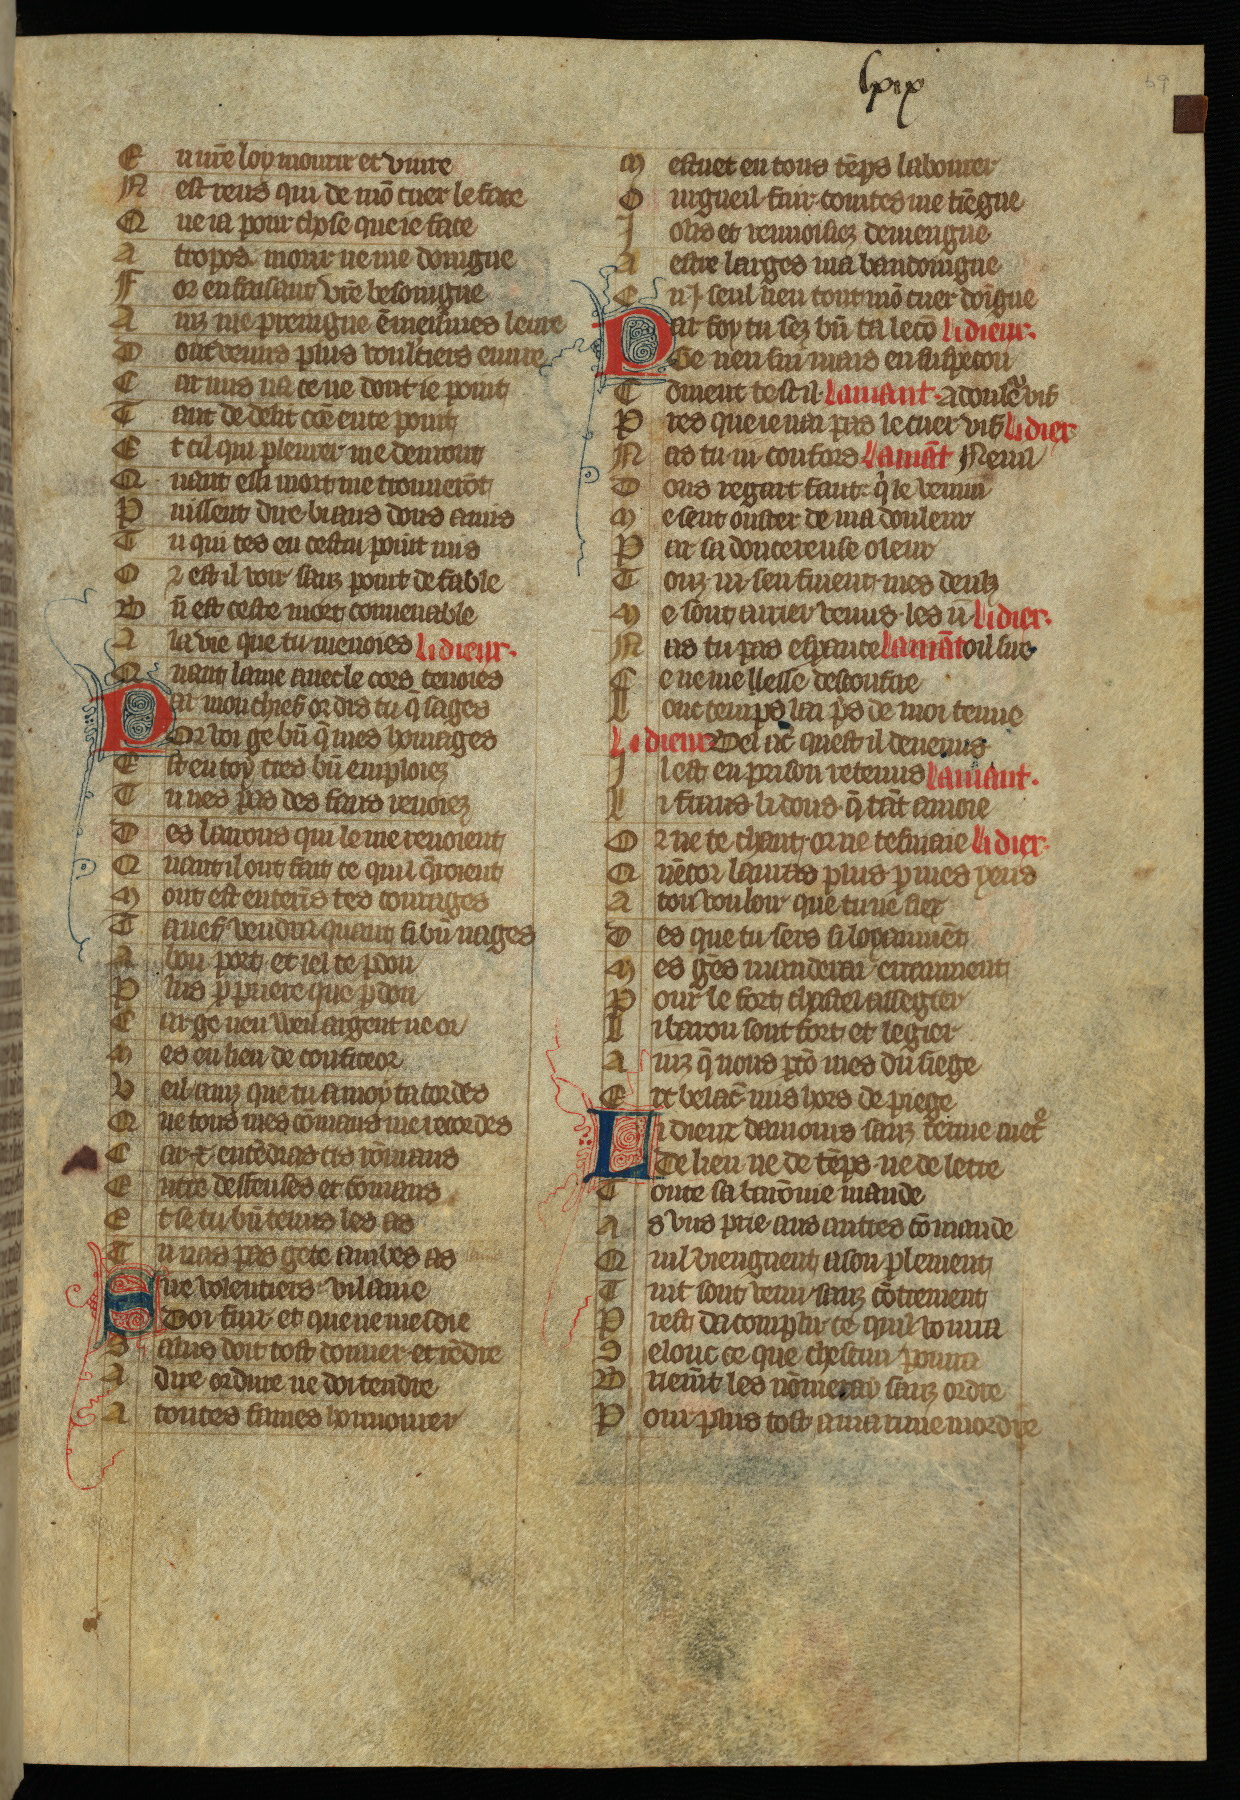 lxix
69
E n vr̄e loy mourir et viure
N est riens qui de mō cuer le face
Q ue ia pour chose que ie face
A tropos morir ne me doingne
F ors en faisant vr̄e besoingne
A inz me preingne ē meismes leure
D ont venus plus voultiers euure
C ar nus na ce ne dout ie point
T ant de delit cōe en ce point
E t cil qui pleurer me deuront
Q uant ensi mort me trouuerōt
P uissent dire biaus dous amis
T u qui tes en cestui point mis
O r est il voir sanz point de fable
B n̄ est ceste mort conuenable
A la vie que tu menoies li dieux.
Q uant lame auec le cors tenoies
P ar mon chief or dis tu q̄ sages
Or voi ge bn̄ q̄ mes homages
E st en toy tres bn̄ emploiez
T u nes pas des faus renoiez
D es larrons qui le me renoient
Q uant il ont fait ce quil q̄roient
M out est enterīs tes courages
T a nef vendra quant si bn̄ nages
A bon port et iel te pdon
P lus p priere que p don
C ar ge nen weil argent ne or
M es en lieu de confiteor
V eil ainz que tu a moy tacordes
Q ue tous mes cōmans me recordes
C ar x entēdras cis rōmans
E ntre deffenses et cōmans
E t se tu bn̄ tenus les as
T u nas pas gete ambes as
S ire volentiers vilanie
Doi fuir et que ne mesdie
S alus doit tost donner et rēdre
A dire ordure ne doi tendre
A toutes fames honnourer
M estuet en tous tēps labourer
O rgueil fuir cointes me tiēgne
J olis et renuoisiez deuiengne
A estre larges mabandoingne
E n j seul lieu tout mō cuer doīgne
P ar foy tu sez bn̄ ta lecō li dieux.
Ge nen sui mais en suspecon
C oment test il lamant. A doulr̄ vif
P res que ie nai pas le cuer vif li diex
N as tu iii confors lamāt Nenil
D ous regart faut q̄ le venin
M e seut ouster de ma douleur
P ar sa doucereuse oleur
T ouz iii sen fuient mes deulz
M e sont arrier venus les ii li diex.
N as tu pas espance lamāt oil sire
C e ne me llesse desconfire
L onc temps lai ps de moi tenue
li dieux Bel ac̄ quest il deuenus
J l est en prison retenus lamant.
L i frans li dous q̄ tāt amoie
O r ne te chaut or ne tesmaie li diex.
Q uēcor lauras plus p mes yeus
A ton vouloir que tu ne siex
D es que tu sers si loyaumēt
M es gēs manderai erraument
P our le fort chastel assegier
L i baron sont fort et legier
A inz q̄ nous ptō mes du siege
E rt belac̄ mis hors de piege
L i dieux damours sanz terme met̄
De lieu ne de tēps ne de letre
T oute sa barōnie mande
A s vns prie aus autres cōmande
Q uil viengnent a son plement
T uit sont venu sanz cōtrement
P rest dacomplir ce quil voura
S elonc ce que chescun poura
B riemt̄ les nōmeray sanz ordre
P our plus tost a ma rime mordre